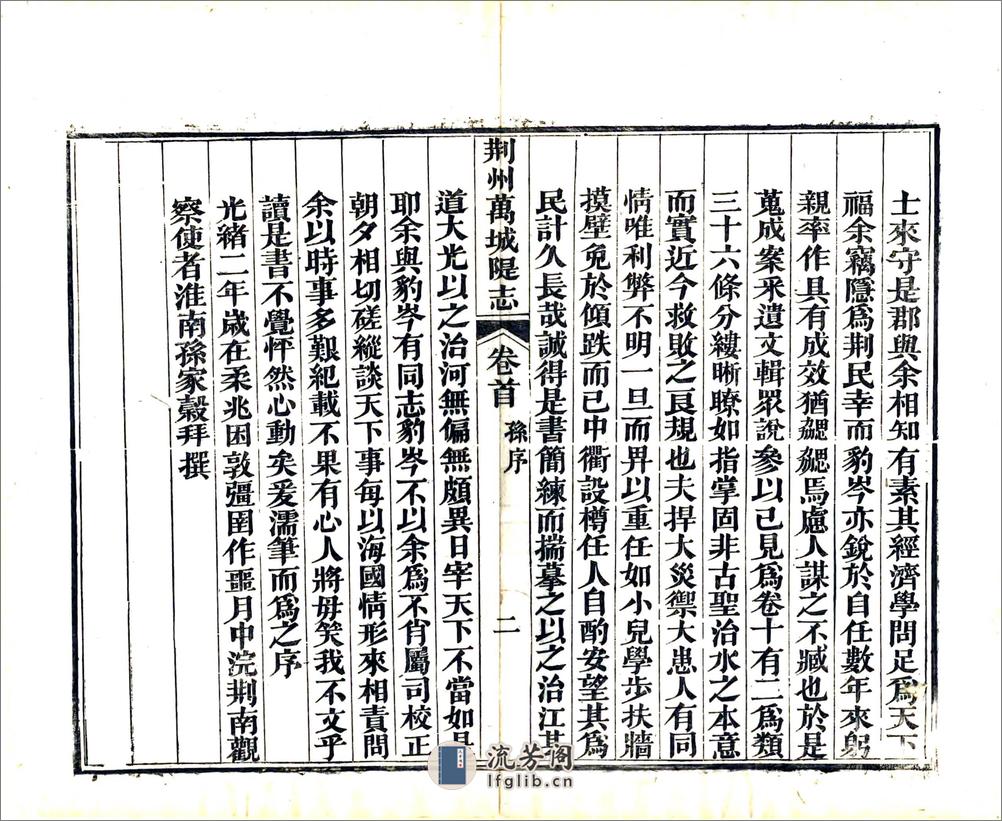 士來守是郡與余相知有素其經濟學問足爲天下
福余竊隱爲荆民幸而豹岑亦銳於自任數年來躬
親率作具有成效猶勰勰焉慮人謀之不臧也於是
蒐成案采遺文輯眾說參以己見爲卷十有二爲類
三十六條分縷晰瞭如指掌固非古聖治水之本意
而實近今救敗之良規也夫捍大災禦大患人有同
情唯利弊不明一旦而畀以重任如小兒學步扶牆
摸壁免於傾跌而已中衢設樽任人自酌安望其爲
民計久長哉誠得是書簡練而揣摹之以之治江其
荆州萬城隄志 卷首 孫序 二
道大光以之治河無偏無頗異日宰天下不當如是
耶余與豹岑有同志豹岑不以余爲不肖屬司校正
朝夕相切磋縱談天下事每以海國情形來相責問
余以時事多艱紀載不果有心人將毋笑我不文乎
讀是書不覺怦然心動矣爰濡筆而爲之序
光緒二年歲在柔兆困敦彊圉作噩月中浣荆南觀
察使者淮南孫家穀拜撰
流芳阁
lfglib.cn